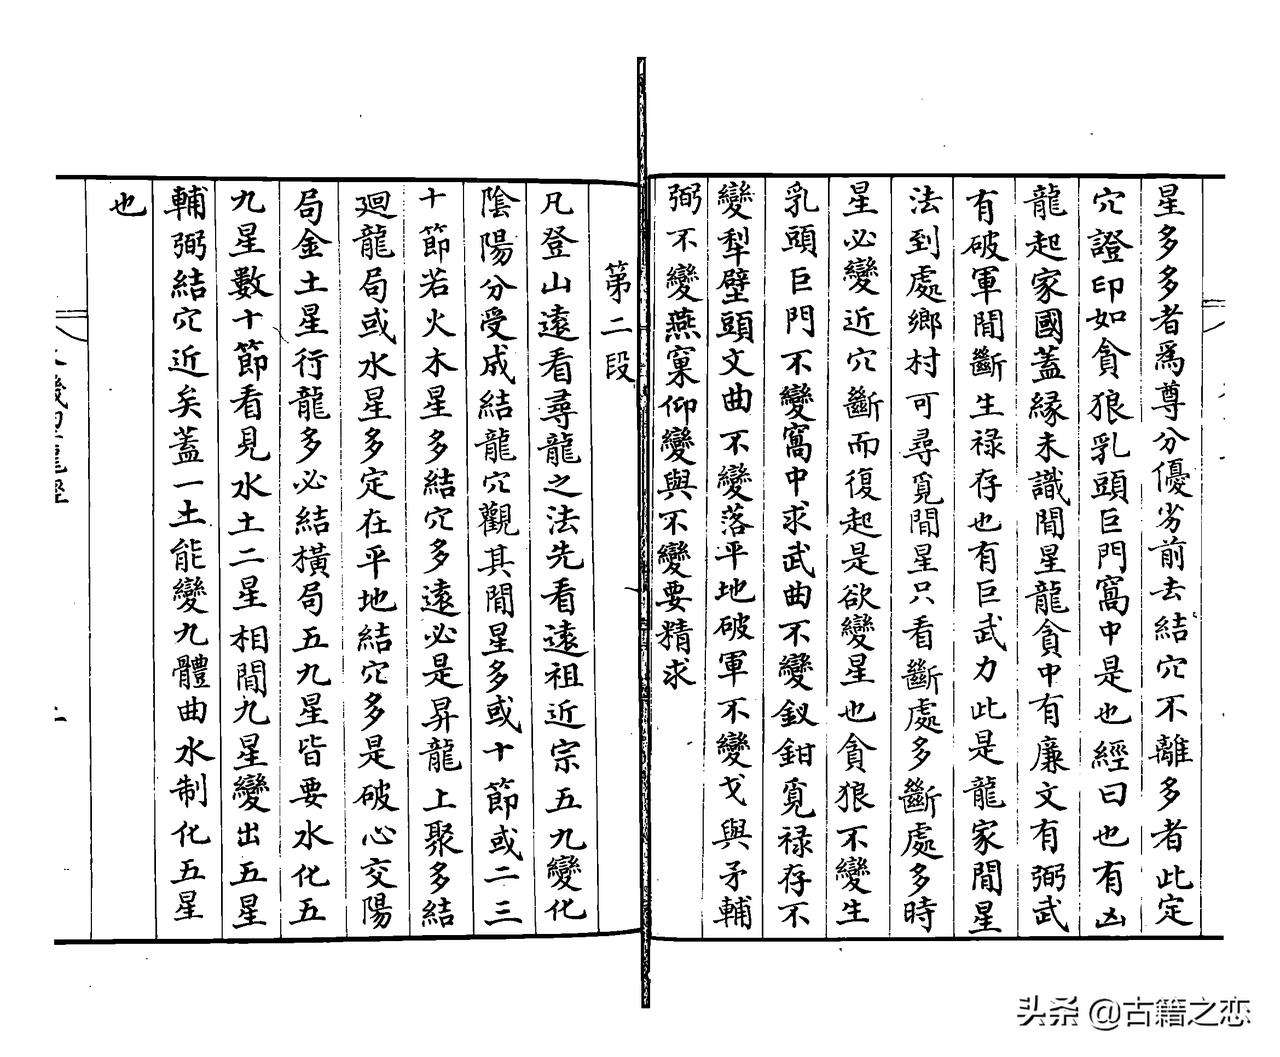 星多多者爲尊分優劣前去結穴不離多者此定
穴證印如貪狼乳頭巨門窩中是也經曰也有凶
龍起家國蓋緣未識間星龍貪中有廉文有弼武
有破軍間斷生祿存也有巨武力此是龍家間星
法到處鄉村可尋覓間星只看斷處多斷處多時
星必變近穴斷而復起是欲變星也貪狼不變生
乳頭巨門不變窩中求武曲不變釵鉗覓祿存不
變犁壁頭文曲不變落平地破軍不變戈與矛輔
弼不變燕窠仰變與不變要精求
第二段
凡登山遠看尋龍之法先看遠祖近宗五九變化
陰陽分受成結龍穴觀其間星多或十節或二三
十節若火木星多結穴多遠必是昇龍上聚多結
廻龍局或水星多定在平地結穴多是破心交陽
局金土星行龍多必結橫局五九星皆要水化五
九星數十節看見水土二星相間九星變出五星
輔弼結穴近矣蓋一土能變九體曲水制化五星
也
頭条 @古籍之恋